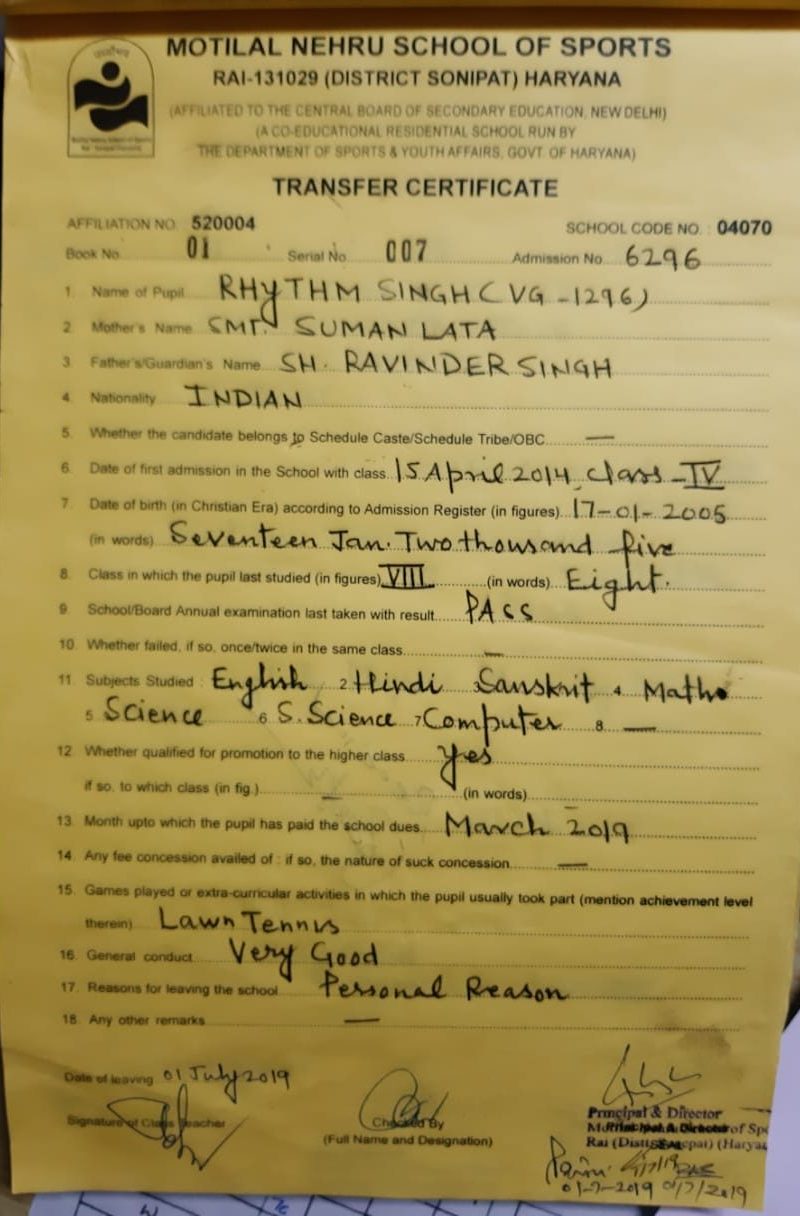 MOTILAL NEHRU SCHOOL OF SPORTS
RAI-131029 (DISTRICT SONIPAT) HARYANA
(AFFILIATED TO THE CENTRAL BOARD OF SECONDARY EDUCATION, NEW DELHI)
(A CO-EDUCATIONAL RESIDENTIAL SCHOOL RUN BY
THE DEPARTMENT OF SPORTS & YOUTH AFFAIRS, GOVT OF HARYANA)
TRANSFER CERTIFICATE
AFFILIATION NO 520004 SCHOOL CODE NO. 04070
Book No. 01 Serial No 007 Admission No 6296
1 Name of Pupil RHYTHM SINGH (VG-1296)
2 Mother's Name SMT. SUMAN LATA
3 Father's/Guardian's Name SH. RAVINDER SINGH
4 Nationality INDIAN
5. Whether the candidate belongs to Schedule Caste/Schedule Tribe/OBC —
6. Date of first admission in the School with class 15 April 2014 class - IV
7 Date of birth (in Christian Era) according to Admission Register (in figures) 17-01-2005
(in words) Seventeen Jan. Two thousand five
8. Class in which the pupil last studied (in figures) VIII (in words) Eight.
9 School/Board Annual examination last taken with result PASS
10 Whether failed, if so, once/twice in the same class —
11 Subjects Studied : English 2 Hindi Sanskrit 4 Maths
5 Science 6 S. Science 7 Computer 8 —
12 Whether qualified for promotion to the higher class Yes
if so, to which class (in fig.) — (in words) —
13. Month upto which the pupil has paid the school dues March 2019
14. Any fee concession availed of : if so, the nature of suck concession —
15. Games played or extra-curricular activities in which the pupil usually took part (mention achievement level
therein) Lawn Tennis
16. General conduct Very Good
17. Reasons for leaving the school Personal Reason
18. Any other remarks —
Date of leaving 01 July 2019
Signature of Class Teacher
Checked By
(Full Name and Designation)
Principal & Director
of Spo
Rai (Distt. Sonepat) (Haryana
01-7-2019 01/7/2019